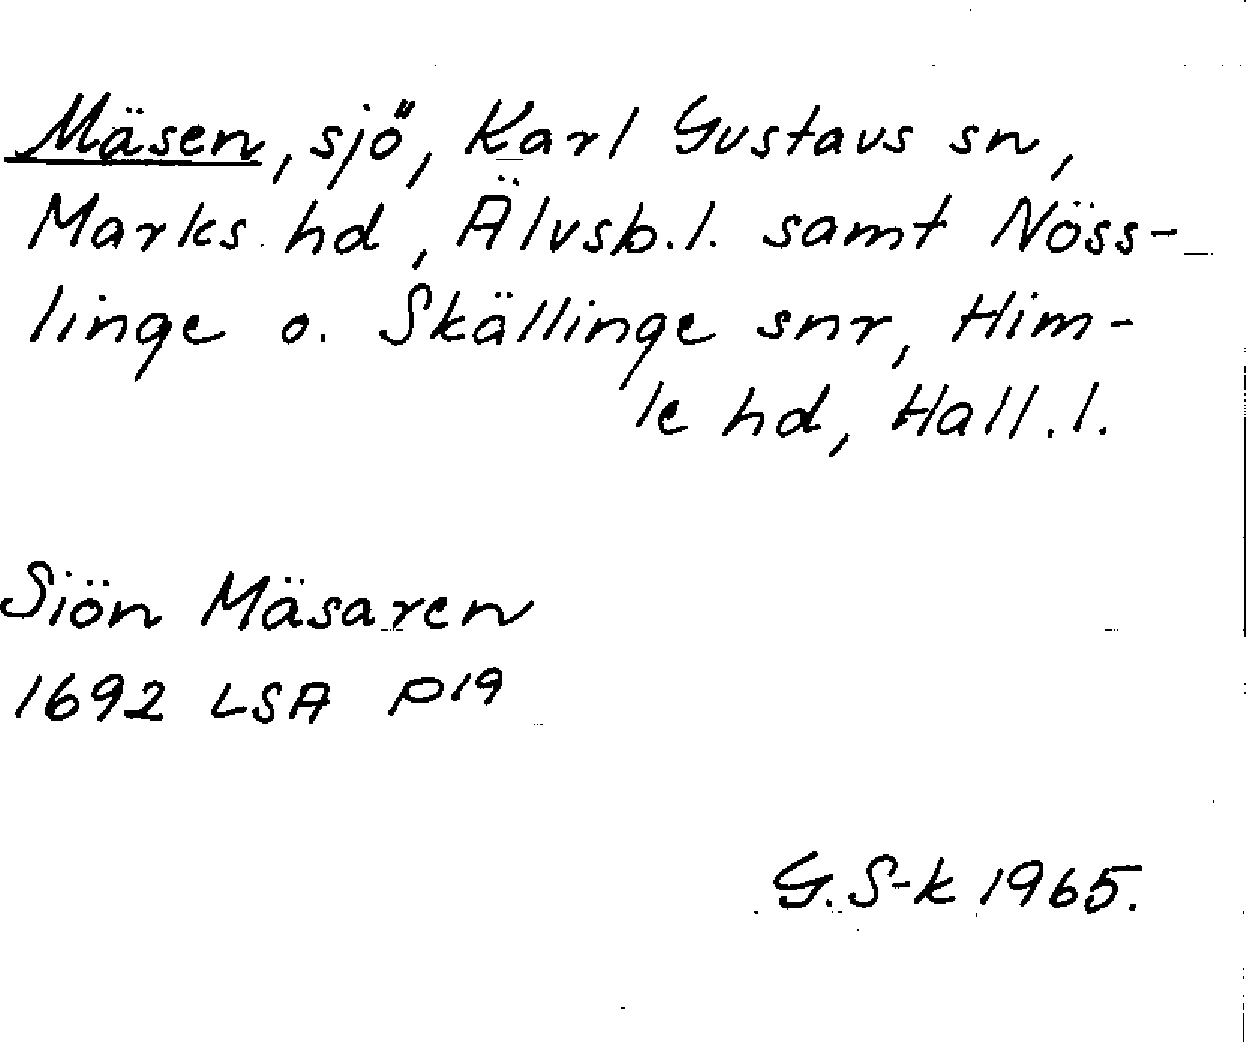 Mäsen, sjö, Karl Gustavs sn,
Marks hd, Älvsb.l. samt Nöss-
linge o. Skällinge snr, Him-
le hd, Hall.l.
Siön Mäsaren
1692 LSA P19
G.S-k 1965.